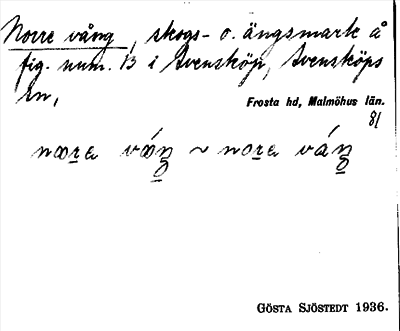 Norre vång, skogs- o. ängsmark å
fig. num. B i Svensköp, Svensköps
sn,
Frosta hd, Malmöhus län.
81
nɷra
~ nora
GÖSTA SJÖSTEDT 1936.